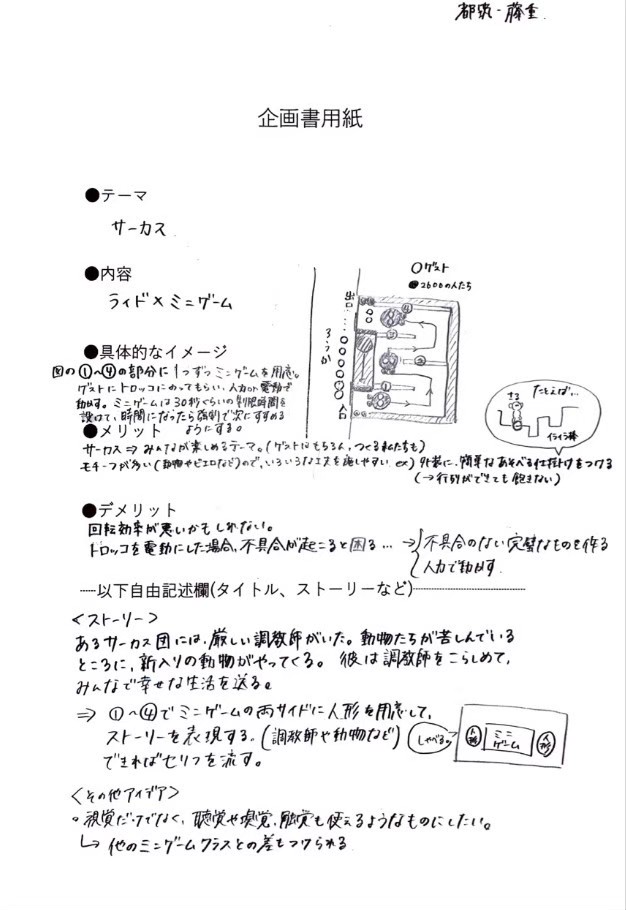 都築・藤重
企画書用紙
●テーマ
サーカス
●内容
ライド×ミニゲーム
○ゲスト
●2600の人たち
出口
ろうか
入口
①
②
③
④
●具体的なイメージ
図の①~④の部分に1つずつミニゲームを用意。
ゲストにトロッコにのってもらい、人力or電動で
動かす。ミニゲームは30秒ぐらいの制限時間を
設けて、時間になったら強制で次にすすめる
ようにする。
たとえば…
さる
イライラ棒
●メリット
サーカス⇒みんなが楽しめるテーマ。(ゲストはもちろん、つくる私たちも)
モチーフが多い(動物やピエロなど)ので、いろいろな工夫を施しやすい ex)外装に、簡単なあそべる仕掛けをつける
(→行列ができても飽きない)
●デメリット
回転効率が悪いかもしれない。
トロッコを電動にした場合、不具合が起こると困る…→不具合のない完璧なものを作る
人力で動かす
-----以下自由記述欄(タイトル、ストーリーなど)-----
<ストーリー>
あるサーカス団には、厳しい調教師がいた。動物たちが苦しんでいる
ところに、新入りの動物がやってくる。彼は調教師をこらしめて、
みんなで幸せな生活を送る。
⇒①~④でミニゲームの両サイドに人形を用意して、
ストーリーを表現する。(調教師や動物など)
できればセリフを流す。
しゃべる
人形
ミニ
ゲーム
人形
<その他アイデア>
。視覚だけでなく、聴覚や嗅覚、触覚も使えるようなものにしたい。
↳他のミニゲームクラスとの差もつけられる